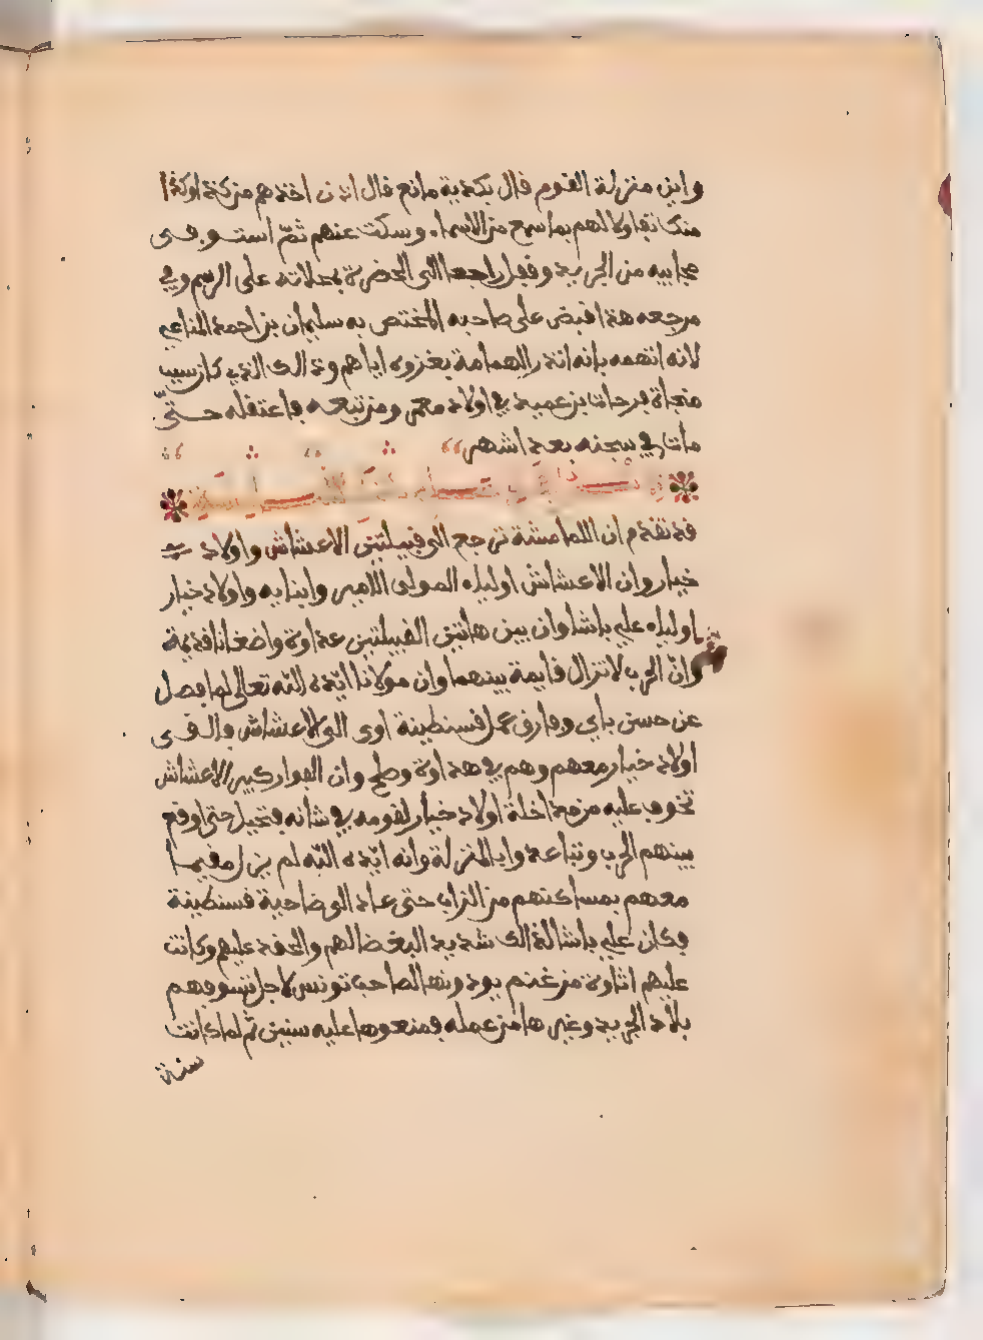 وابن منزلة القوم قال بكدية مانع قال اذن اخذهم من كذا وكذا
منكا نقاولا لهم بما سمع من الاسماء وسكت عنهم ثمّ استوفى
مجابيه من الجريد وقفل راجعا الى الحضرة بمحلاته على الرسم وفي
مرجعه هذا قبض على صاحبه المختص به سليمان بن احمد المناعي
لانه اتهمه بانه انذر الهمامة بغزوه اياهم وذالك الذي كان سبب
منجاة فرحات بن عمية في اولاد معمر ومن تبعه فاعتقله حتّى
مات في سجنه بعد اشهر
قد تقدم ان اللمامشة ترجع الى قبيلتين الاعشاش واولاد
خيار وان الاعشاش اولياء المولى الامير وابنايه واولاد خيار
اولياء علي باشا وان بين هاتين القبيلتين عداوة واضغانا قديمة
وانّ الحرب لا تزال قايمة بينهما وان مولانا ايّده اللّه تعالى لما فصل
عن حسن باي وفارق عمل قسنطينة اوى الى الاعشاش والفى
اولاد خيار معهم وهم في هداوة وصلح وان الفوار كبير الاعشاش
تخوف عليه من مداخلة اولاد خيار لقومه في شانه فتحيل حتى اوقع
بينهم الحرب وتباعدوا بالمنزلة وانه ايّده اللّه لم يزل مقيما
معهم بمساكنهم من الزاب حتى عاد الى ضاحية قسنطينة
وكان علي باشا لذالك شديد البغض لهم والحقد عليهم وكانت
عليهم اتاوة من غنم يودونها لصاحب تونس لاجل تسوقهم
بلاد الجريد وغيرها من عمله فمنعوها عليه سنين ثم لما كانت
سنة